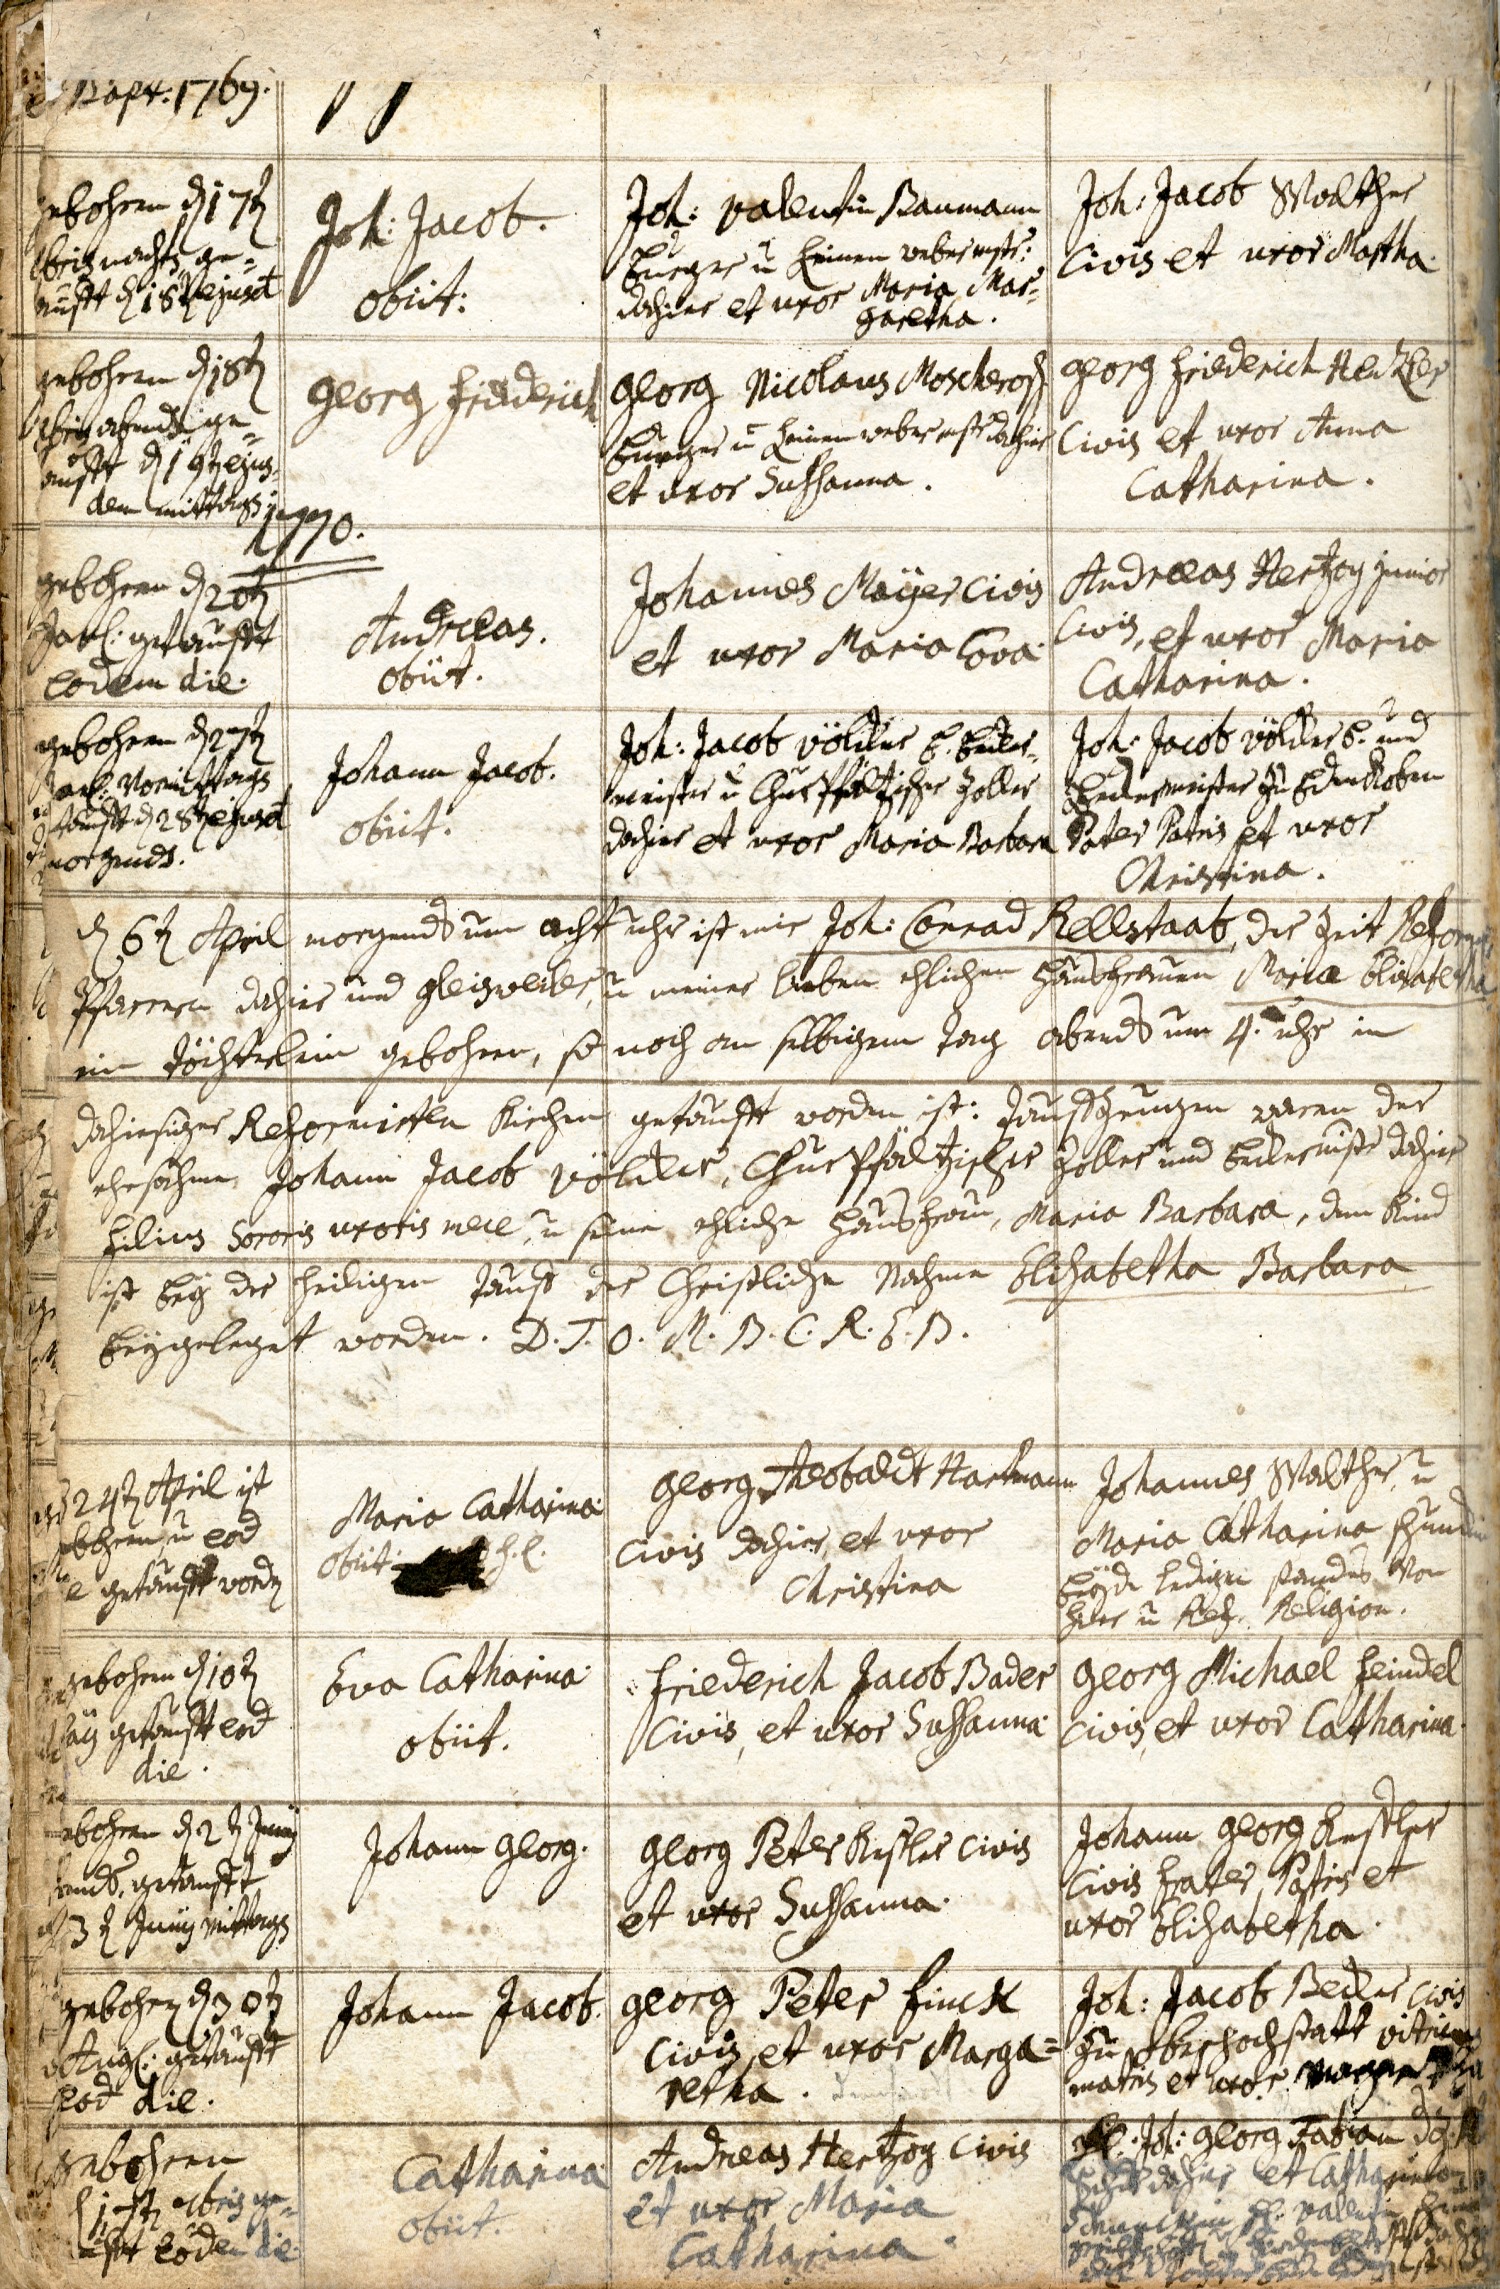 Bapt: 1769.
gebohren d 17t
bris nachts ge=
taufft d 18t ejusd
Joh: Jacob.
obiit:
Joh: Valentin Baumann
burger u Leinenweber mstr:
dahier et uxor Maria Mar=
garetha.
Joh: Jacob Walther
Civis et uxor Martha.
gebohren d 18t
bris abends ge=
taufft d 19t ejus
dem mittags
georg Friederich
georg Nicolaus Moscherosch
burger u Leinenweber mstr dahier
et uxor Sussanna.
georg Friederich Hertzler
Civis et uxor Anna
Catharina.
1770.
gebohren d 20t
Jan: getaufft
eodem die.
Andreas.
obiit.
Johannes Mayer Civis
et uxor Maria Eva.
Andreas Hertzog junior
Civis, et uxor Maria
Catharina.
gebohren d 27t
Vormittags
taufft d 28t ejusd
morgends.
Johann Jacob.
obiit.
Joh: Jacob Völcker b. becker
meister u ChurPfältzischer Zoller
dahier et uxor Maria Barbara
Joh: Jacob Völcker b. und
beckermeister zu Edenkoben
Pater Patris et uxor
Christina.
d 6t April morgends um acht uhr ist mir Joh: Conrad Rellstaab, der Zeit Reform
Pfarrern dahier und gleisweiler, u meiner lieben ehlichen Haussfrauen Maria Elisabetha
ein Töchterlein gebohren, so noch am selbigem Tag abends um 4. uhr in
dahiesiger Reformirten Kirchen getaufft worden ist: Tauffzeugen waren der
ehrsame Johann Jacob Völcker, ChurPfältzischer Zoller und beckermstr dahier
Filius Sororis uxoris meae, u seine ehliche Hausfrau, Maria Barbara, dem Kind
ist bey der heiligen Tauff der Christliche Nahme Elisabetha Barbara
beygeleget worden. D. T. O. M. B. C. R. E. B.
24t April ist
gebohren u eod
getaufft worden
Maria Catharina
obiit.
georg Theobaldt Hartmann
Civis dahier, et uxor
Christina
Johannes Walther, u
Maria Catharina
beyde ledigen standes von
hier u Ref. Religion.
gebohren d 10t
May getaufft eod
die.
Eva Catharina
obiit.
Friederich Jacob Bader
Civis, et uxor Sussanna.
georg Michael Heindel
Civis, et uxor Catharina.
gebohren d 2t Juny
abends, getaufft
d 3t Juny mittags
Johann georg.
georg Peter Kesler Civis
et uxor Sussanna.
Johann georg Kestler
Civis Frater Patris et
uxor Elisabetha.
gebohren d 30t
Aug: getaufft
eod die.
Johann Jacob.
georg Peter Finck
Civis, et uxor Marga=
retha.
Joh: Jacob Becker Civis
zu oberhochstatt vitricus
matris et uxor
gebohren
d 17t bris ge=
taufft eodem die
Catharina
obiit.
Andreas Hertzog Civis
et uxor Maria
Catharina.
Joh: georg Fabian
dahier et Catharina
Valentin